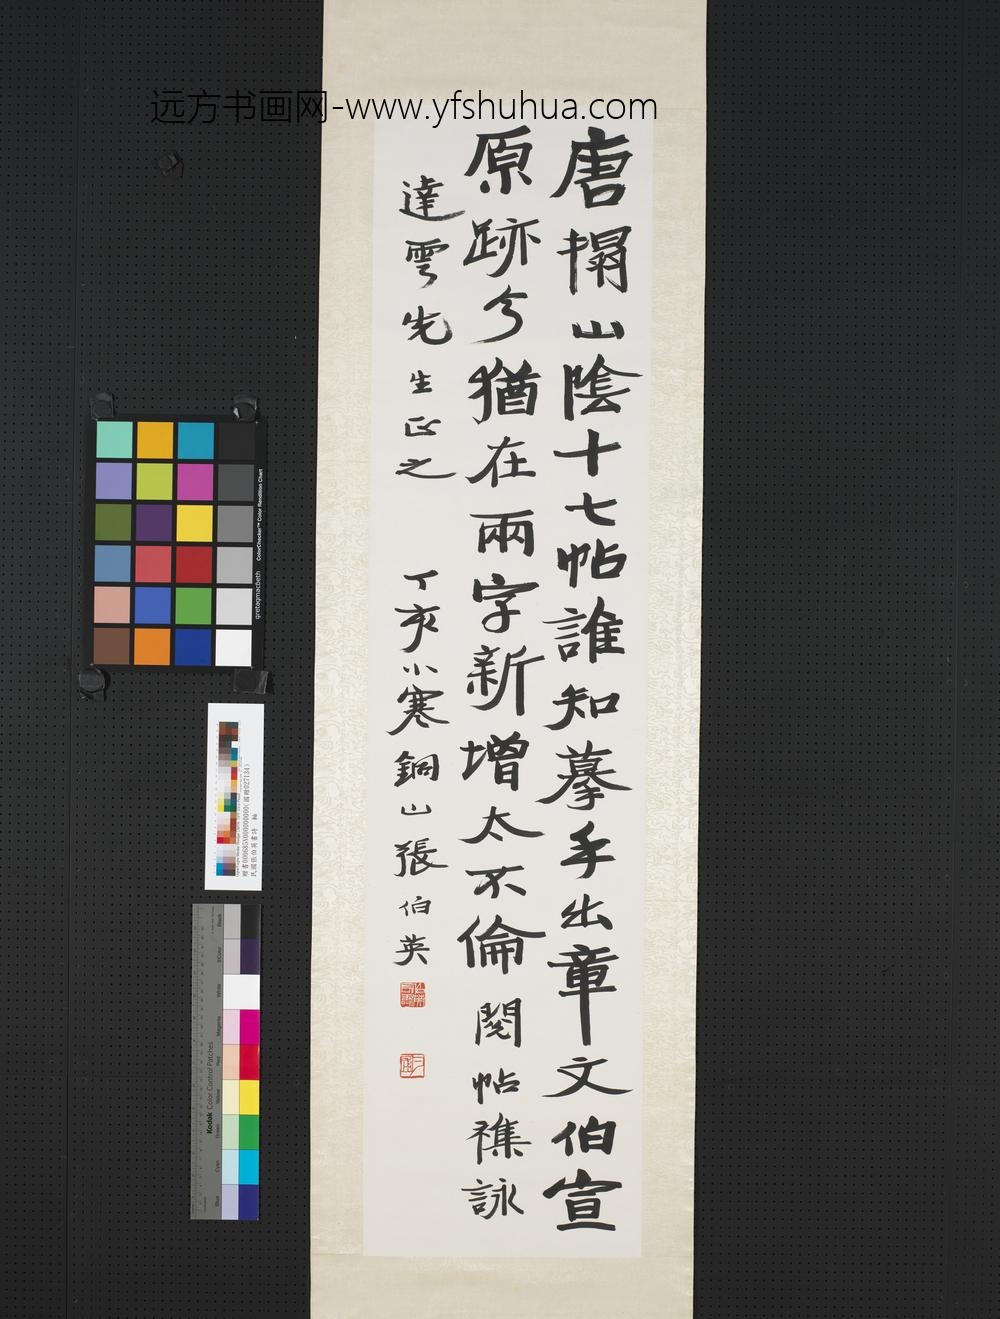 远方书画网-www.yfshuhua.com
唐搨山陰十七帖誰知摹手出章文伯宣
原跡今猶在兩字新增太不倫 閱帖襍詠
達雲先生正之 丁亥小寒銅山張伯英
ColorChecker™ Color Rendition Chart
gretagmacbeth
民國張伯英書詩 軸
Kodak Color Control Patches
Blue Cyan Green Yellow Red Magenta White 3/Color Black